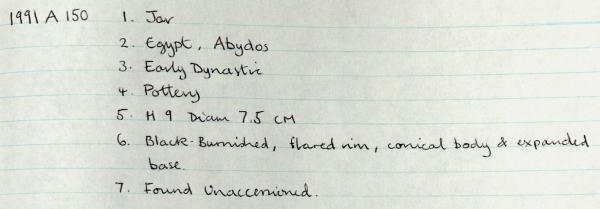 1991 A 150 1. Jar
2. Egypt, Abydos
3. Early Dynastic
4. Pottery
5. H 9 Diam 7.5 CM
6. Black-Burnished, flared rim, conical body & expanded
base.
7. Found Unaccessioned.